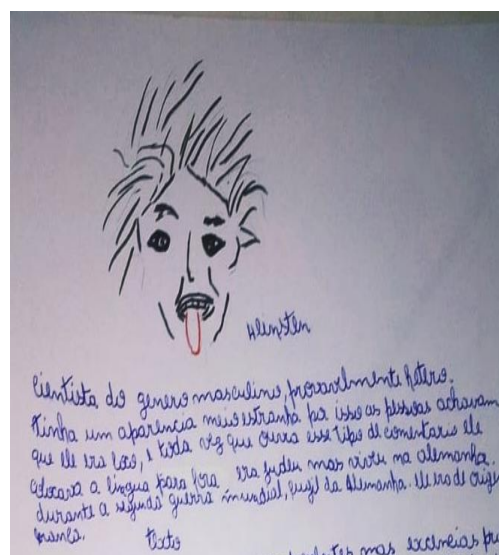 Aeinsten
Cientista, do genero masculino, provavelmente hetero.
tinha um aparencia meio estranha por isso as pessoas achavam
que ele era loco, e toda vez que ouvia esse tipo de comentario ele
colocava a lingua para fora. era judeu mas viveu na alemanha.
durante a segunda guerra mundial, fugil da Alemanha. ele era de origem
branca.
texto
mas